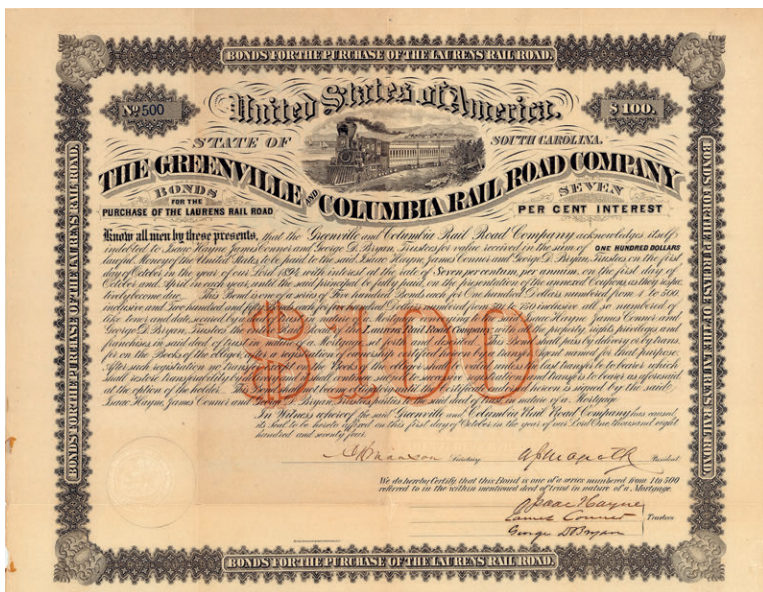 BONDS FOR THE PURCHASE OF THE LAURENS RAIL ROAD.
No 500
United States of America.
$100.
STATE OF
SOUTH CAROLINA.
THE GREENVILLE AND COLUMBIA RAIL ROAD COMPANY
BONDS
FOR THE
PURCHASE OF THE LAURENS RAIL ROAD
SEVEN
PER CENT INTEREST
BONDS FOR THE PURCHASE OF THE LAURENS RAIL ROAD.
BONDS FOR THE PURCHASE OF THE LAURENS RAIL ROAD.
Know all men by these presents, that the Greenville and Columbia Rail Road Company acknowledges itself
indebted to Isaac Hayne, James Conner and George D. Bryan, Trustees for value received in the sum of ONE HUNDRED DOLLARS
lawful Money of the United States, to be paid to the said Isaac Hayne, James Conner and George D. Bryan, Trustees, on the first
day of October, in the year of our Lord 1894, with interest at the rate of Seven per centum, per annum, on the first day of
October and April in each year, until the said principal be fully paid, on the presentation of the annexed Coupons, as they respec
tively become due. This Bond is one of a series of Five hundred Bonds each for One hundred Dollars numbered from 1 to 500
inclusive and Two hundred and fifty Bonds each for Five hundred Dollars numbered from 501 to 750 inclusive all so numbered of
like tenor and date, secured by a deed of trust in nature of a Mortgage executed by the said Isaac Hayne, James Conner and
George D. Bryan, Trustees the Rail Road of the Laurens Rail Road Company, with all the property, rights, privileges and
franchises, in said deed of trust in nature of a Mortgage set forth and described. This Bond shall pass by delivery or by trans
fer on the Books of the obligor, after a registration of ownership certified hereon by a Transfer agent named for that purpose.
After such registration no transfer except on the Books of the obligor shall be valid, unless the last transfer be to bearer which
shall restore transferability by delivery and shall continue subject to successive registrations and transfers to bearer as aforesaid
at the option of the holder. This Bond shall not become obligatory until the certificate endorsed hereon is signed by the said
Isaac Hayne, James Conner and George D. Bryan, Trustees, parties to the said deed of trust in nature of a Mortgage
In Witness whereof the said Greenville and Columbia Rail Road Company has caused
its Seal to be hereto affixed on this first day of October in the year of our Lord One thousand eight
hundred and seventy four.
$100
Secretary
President
We do hereby Certify that this Bond is one of a series numbered from 1 to 500
referred to in the within mentioned deed of trust in nature of a Mortgage.
Isaac Hayne
James Conner
Trustees
George D Bryan
BONDS FOR THE PURCHASE OF THE LAURENS RAIL ROAD.